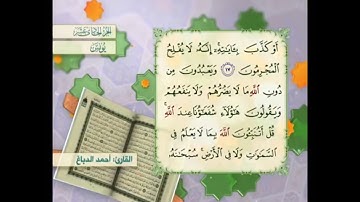 الجزء الحادي عشر
يونس
أَوْ كَذَّبَ بِـَٔايَٰتِهِۦٓ ۚ إِنَّهُۥ لَا يُفْلِحُ
ٱلْمُجْرِمُونَ ١٧ وَيَعْبُدُونَ مِن
دُونِ ٱللَّهِ مَا لَا يَضُرُّهُمْ وَلَا يَنفَعُهُمْ
وَيَقُولُونَ هَٰٓؤُلَآءِ شُفَعَٰٓؤُنَا عِندَ ٱللَّهِ ۚ
قُلْ أَتُنَبِّـُٔونَ ٱللَّهَ بِمَا لَا يَعْلَمُ فِى
ٱلسَّمَٰوَٰتِ وَلَا فِى ٱلْأَرْضِ ۚ سُبْحَٰنَهُۥ
القارئ: أحمد الدباغ